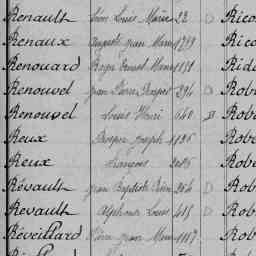 Renault Louis Marie 22 D Rico
Renaux Auguste Jean Marie 1299 Rico
Renouard Roger Ernest Marie 1131 Rid
Renouvel Jean Pierre 294 D Rob
Renouvel Louis Henri 640 D Rob
Reux Prosper Joseph 1196 Rob
Reux François 2085 Rob
Révault Jean Baptiste 264 D Rob
Revault Alphonse Louis 415 D Rob
Réveillard Pierre Jean Marie 1157 Rob